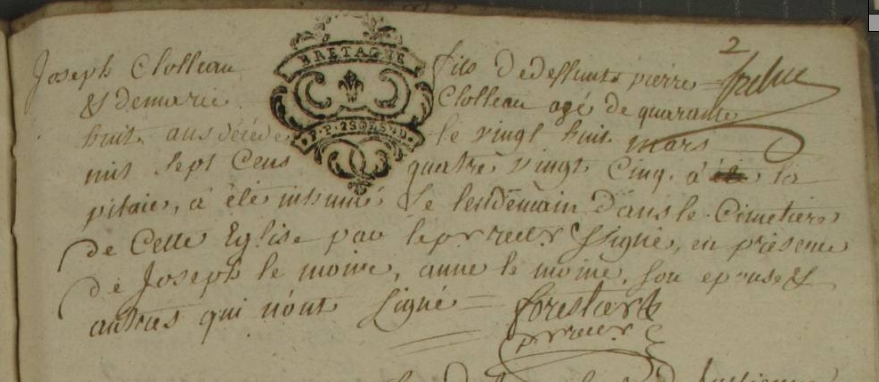 2
Joseph Clolleau fils dedeffunts pierre
BRETAGNE
& demarie Clolleau agé de quarante
huit ans décédé le vingt huit mars
mil sept Cens quatre vingt Cinq, à la
pitaie, à été inhumé Le lendemain dans le Cimetiere
de Cette Eglise par le Soussigné, en présence
de Joseph le moine, anne le moine, son epouse &
autres qui n'ont signé = forestier